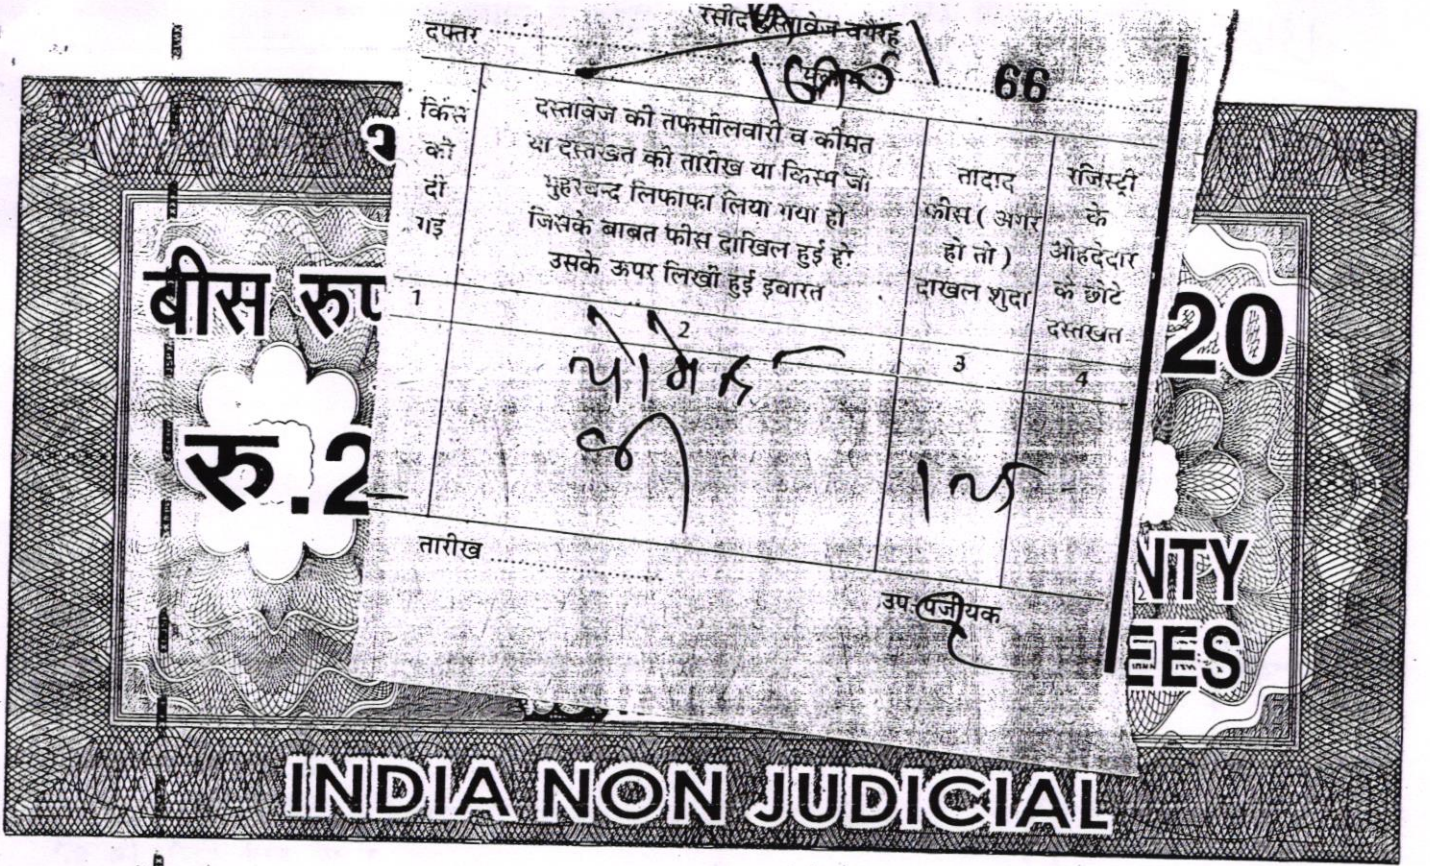 रसीद दस्तावेज वगैरह
दफ्तर
66
किसे
को
दी
गई
दस्तावेज की तफसीलवारी व कीमत
या दस्तखत की तारीख या किस्म जो
मुहरबन्द लिफाफा लिया गया हो
जिसके बाबत फीस दाखिल हुई हो
उसके ऊपर लिखी हुई इबारत
तादाद
फीस ( अगर
हो तो )
दाखल शुदा
रजिस्ट्री
के
ओहदेदार
के छोटे
दस्तखत
1
2
3
4
तारीख
उप-पंजीयक
बीस रुप
रु.2
20
NTY
EES
INDIA NON JUDICIAL